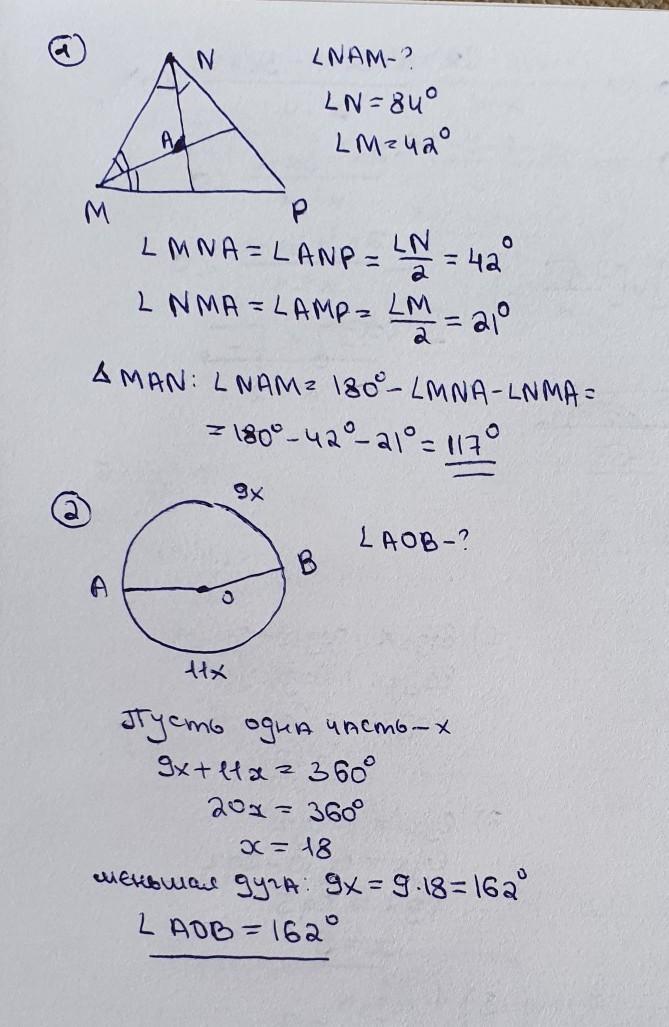 1
N
∠NAM-?
∠N=84°
∠M=42°
A
M
P
∠MNA=∠ANP=∠N/2=42°
∠NMA=∠AMP=∠M/2=21°
△MAN: ∠NAM=180°-∠MNA-∠NMA=
=180°-42°-21°=117°
2
9x
∠AOB-?
A
B
O
11x
Пусть одна часть-x
9x+11x=360°
20x=360°
x=18
меньшая дуга: 9x=9·18=162°
∠AOB=162°